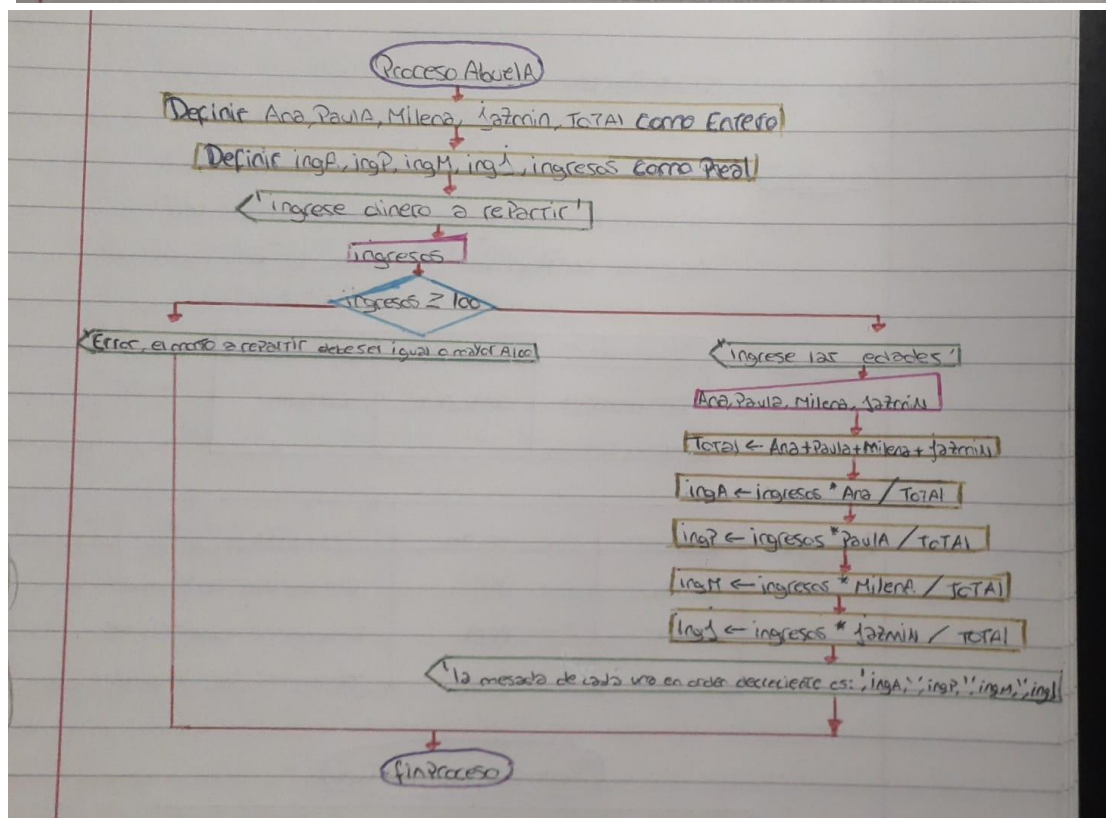 Proceso AbuelA
Definir Ana, PaulA, Milena, jazmin, TOTAl como Entero
Definir ingA, ingP, ingM, ingJ, ingresos como Real
'ingrese dinero a repartir'
ingresos
ingresos ≥ 100
Error, el monto a repartir debe ser igual o mayor A 100
'ingrese las edades'
Ana, Paula, Milena, jazmiN
TOTAl ← Ana+Paula+Milena+jazmiN
ingA ← ingresos * Ana / TOTAl
ingP ← ingresos * PaulA / TOTAl
ingM ← ingresos * MilenA / TOTAl
ingJ ← ingresos * jazmiN / TOTAl
'la mesada de cada uno en orden decreciente es:', ingA,' ', ingP,' ', ingM,' ', ingJ
finProceso